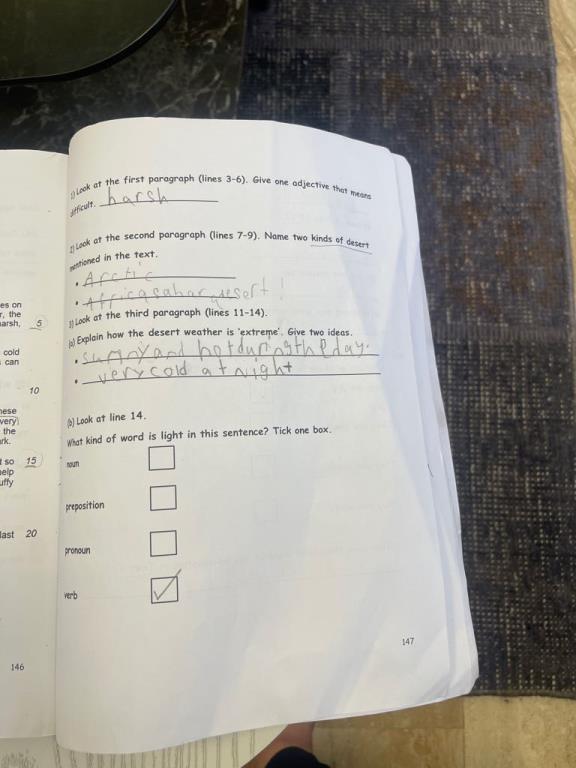 es on
r, the
arsh, 5
cold
can
10
hese
very)
the
rk.
t so 15
help
uffy
last 20
146
1) Look at the first paragraph (lines 3-6). Give one adjective that means
difficult. harsh
2) Look at the second paragraph (lines 7-9). Name two kinds of desert
mentioned in the text.
• Arctic
• Africasahar desert!
3) Look at the third paragraph (lines 11-14).
(a) Explain how the desert weather is 'extreme'. Give two ideas.
• sunny and hot during the day.
• very cold at night
(b) Look at line 14.
What kind of word is light in this sentence? Tick one box.
noun
preposition
pronoun
verb
147